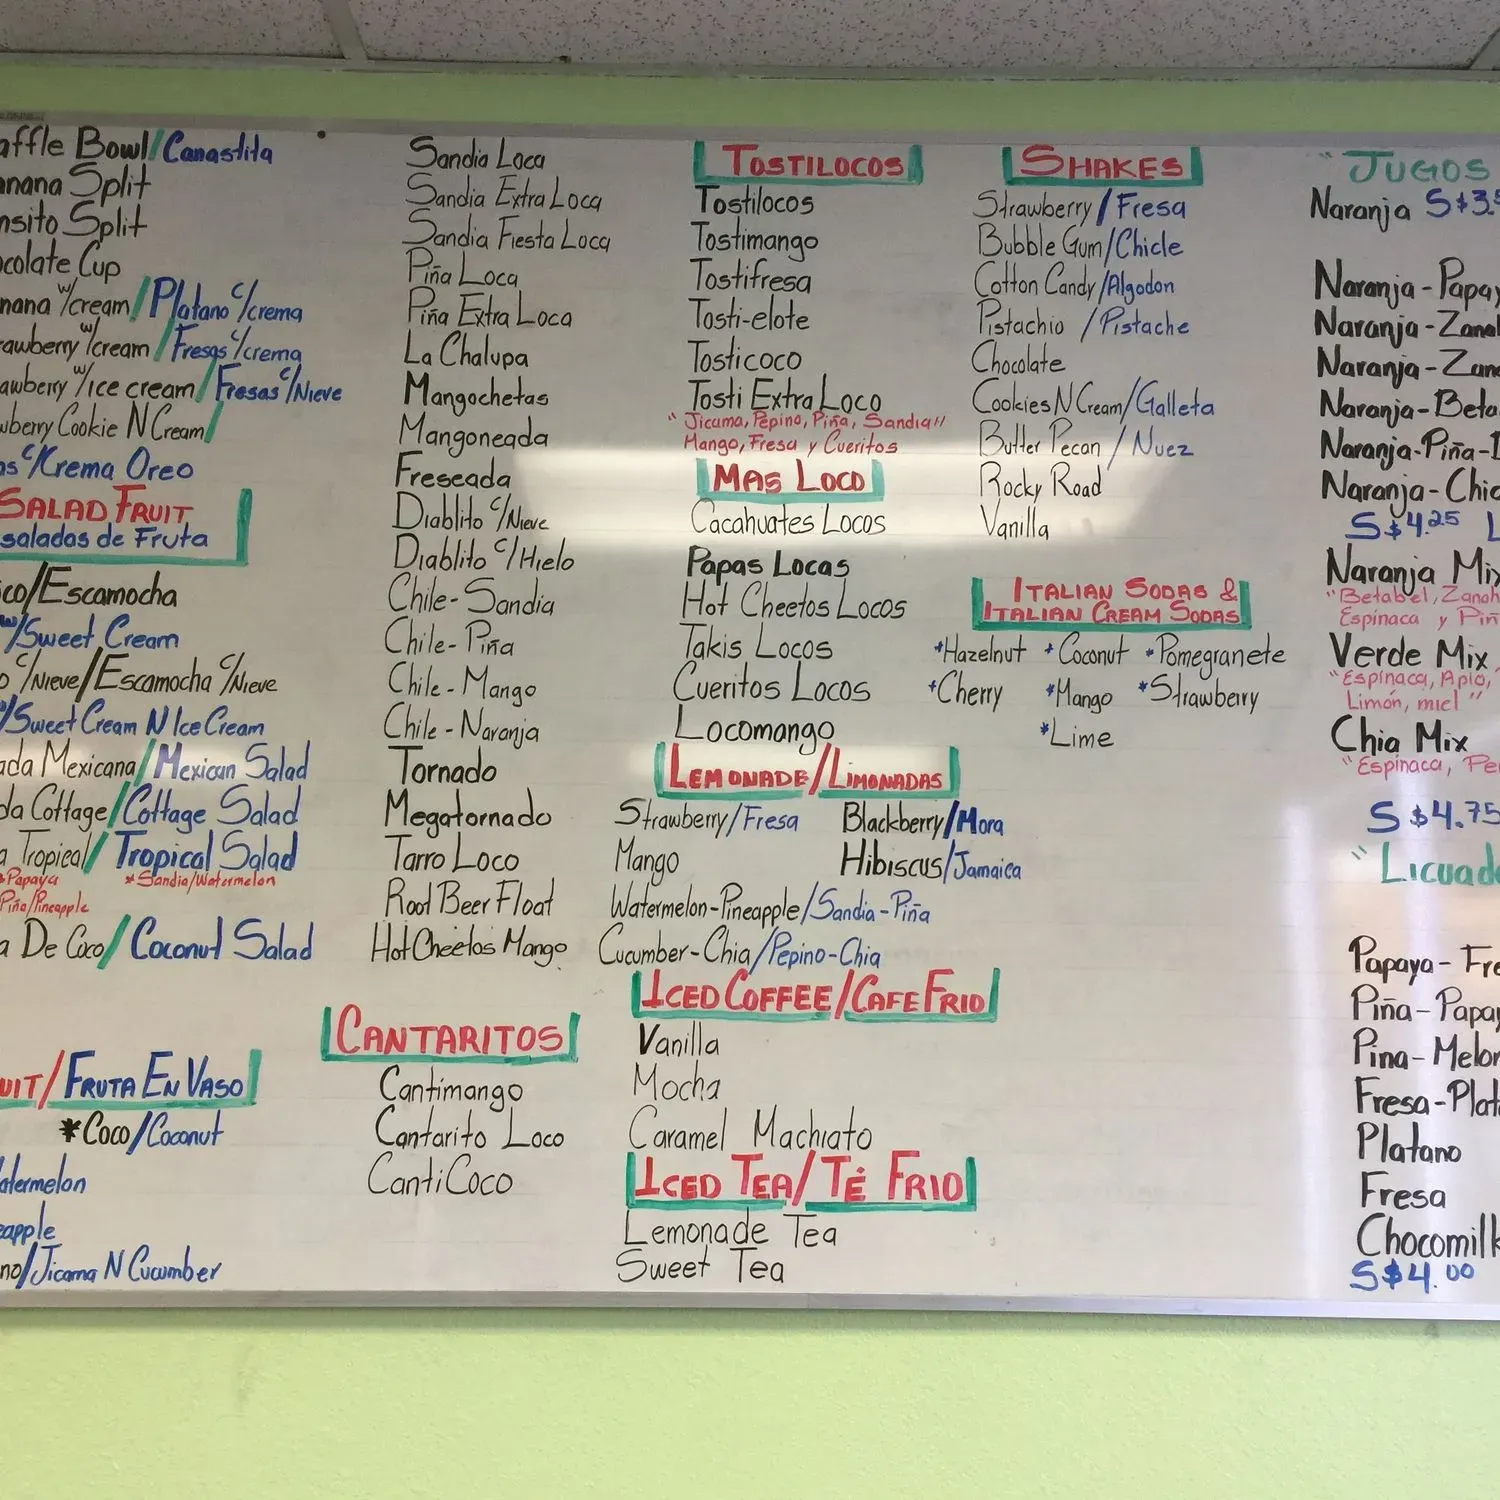 Bowl/Canastita
Split
Split
Cup
w/cream/Platano c/crema
w/cream/Fresas c/crema
w/Ice cream/Fresas c/Nieve
Cookie N Cream/
c/Krema Oreo
SALAD FRUIT
de Fruta
/Escamocha
w/Sweet Cream
c/Nieve/Escamocha c/Nieve
/Sweet Cream N Ice Cream
Mexicana/Mexican Salad
Cottage/Cottage Salad
Tropical/Tropical Salad
*Papaya *Sandia/Watermelon
Piña/Pineapple
De Coco/Coconut Salad
/FRUTA EN VASO
*Coco/Coconut
/Jicama N Cucumber
Sandia Loca
Sandia Extra Loca
Sandia Fiesta Loca
Piña Loca
Piña Extra Loca
La Chalupa
Mangochetas
Mangoneada
Freseada
Diablito c/Nieve
Diablito c/Hielo
Chile-Sandia
Chile-Piña
Chile-Mango
Chile-Naranja
Tornado
Megatornado
Tarro Loco
Root Beer Float
Hot Cheetos Mango
CANTARITOS
Cantimango
Cantarito Loco
CantiCoco
TOSTILOCOS
Tostilocos
Tostimango
Tostifresa
Tosti-elote
Tosticoco
Tosti Extra Loco
"Jicama, Pepino, Piña, Sandia"
Mango, Fresa y Cueritos
MAS LOCO
Cacahuates Locos
Papas Locas
Hot Cheetos Locos
Takis Locos
Cueritos Locos
Locomango
LEMONADE/LIMONADAS
Strawberry/Fresa Blackberry/Mora
Mango Hibiscus/Jamaica
Watermelon-Pineapple/Sandia-Piña
Cucumber-Chia/Pepino-Chia
ICED COFFEE/CAFE FRIO
Vanilla
Mocha
Caramel Machiato
ICED TEA/TÉ FRIO
Lemonade Tea
Sweet Tea
SHAKES
Strawberry/Fresa
Bubble Gum/Chicle
Cotton Candy/Algodon
Pistachio /Pistache
Chocolate
Cookies N Cream/Galleta
Butter Pecan / Nuez
Rocky Road
Vanilla
ITALIAN SODAS &
ITALIAN CREAM SODAS
*Hazelnut *Coconut *Pomegranete
*Cherry *Mango *Strawberry
*Lime
"JUGOS
Naranja S $3.
Naranja-
Naranja-
Naranja-
Naranja-
Naranja-Piña-
Naranja-
S $4.25 L
Naranja Mix
"Betabel,
Espinaca y
Verde Mix
"Espinaca, Apio,
Limón, miel"
Chia Mix
"Espinaca,
S $4.75
"
Papaya-
Piña-
Pina-
Fresa-
Platano
Fresa
Chocomilk
S $4.00